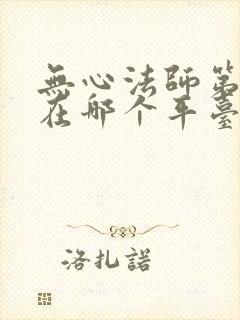 無心法師第
在那个平臺
洛扎諾